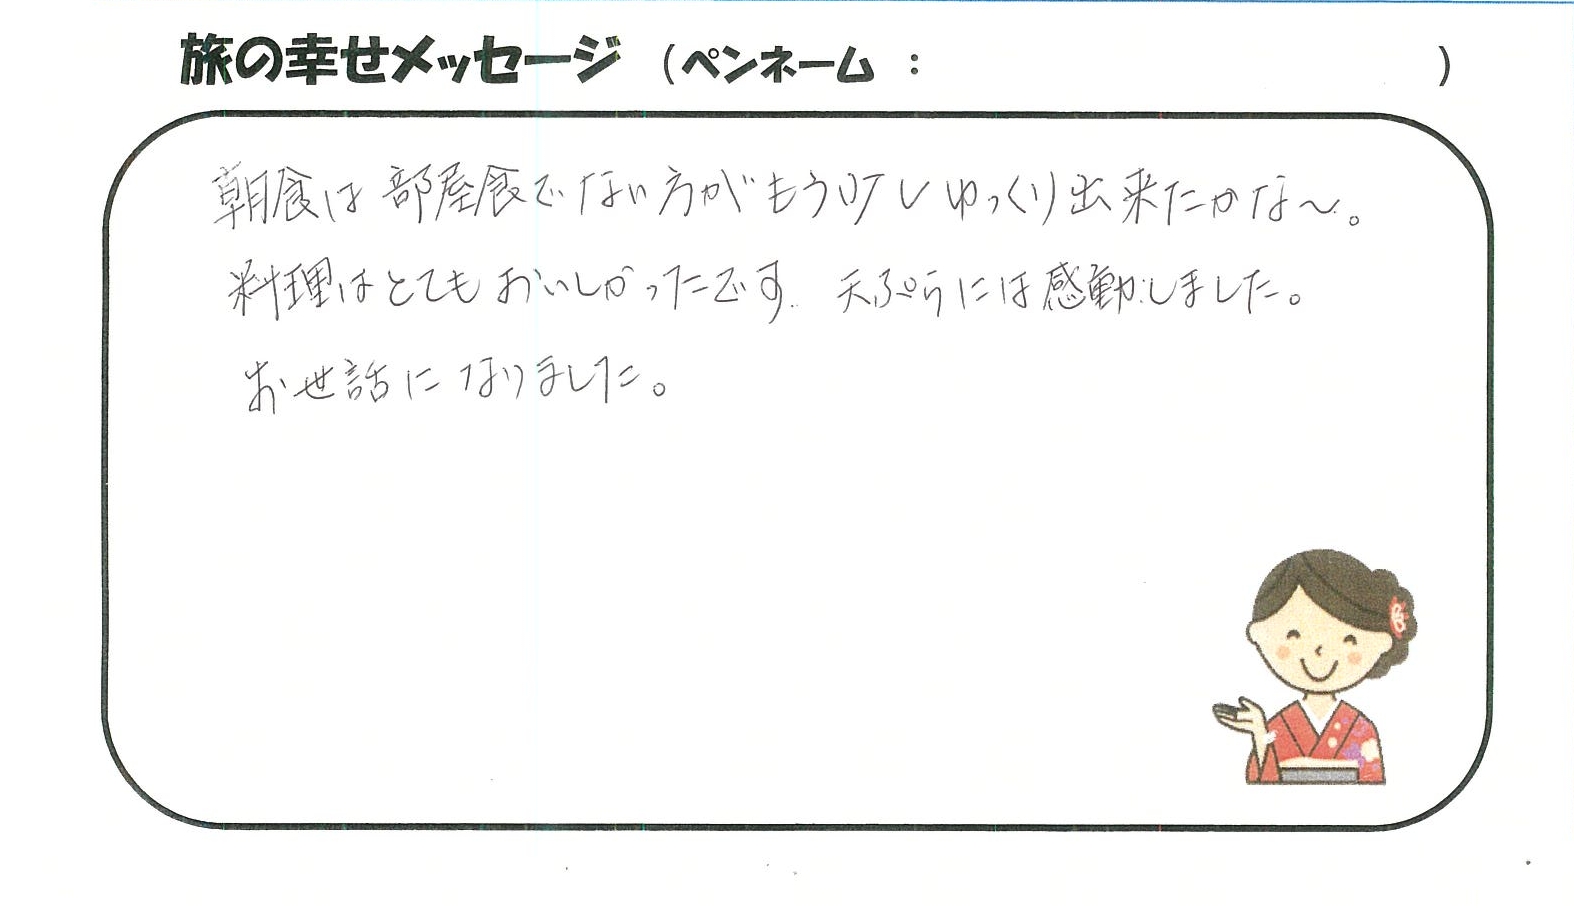 旅の幸せメッセージ （ペンネーム ： ）
朝食は部屋食でない方がもう少しゆっくり出来たかな〜。
料理はとてもおいしかったです. 天ぷらには感動しました。
お世話になりました。